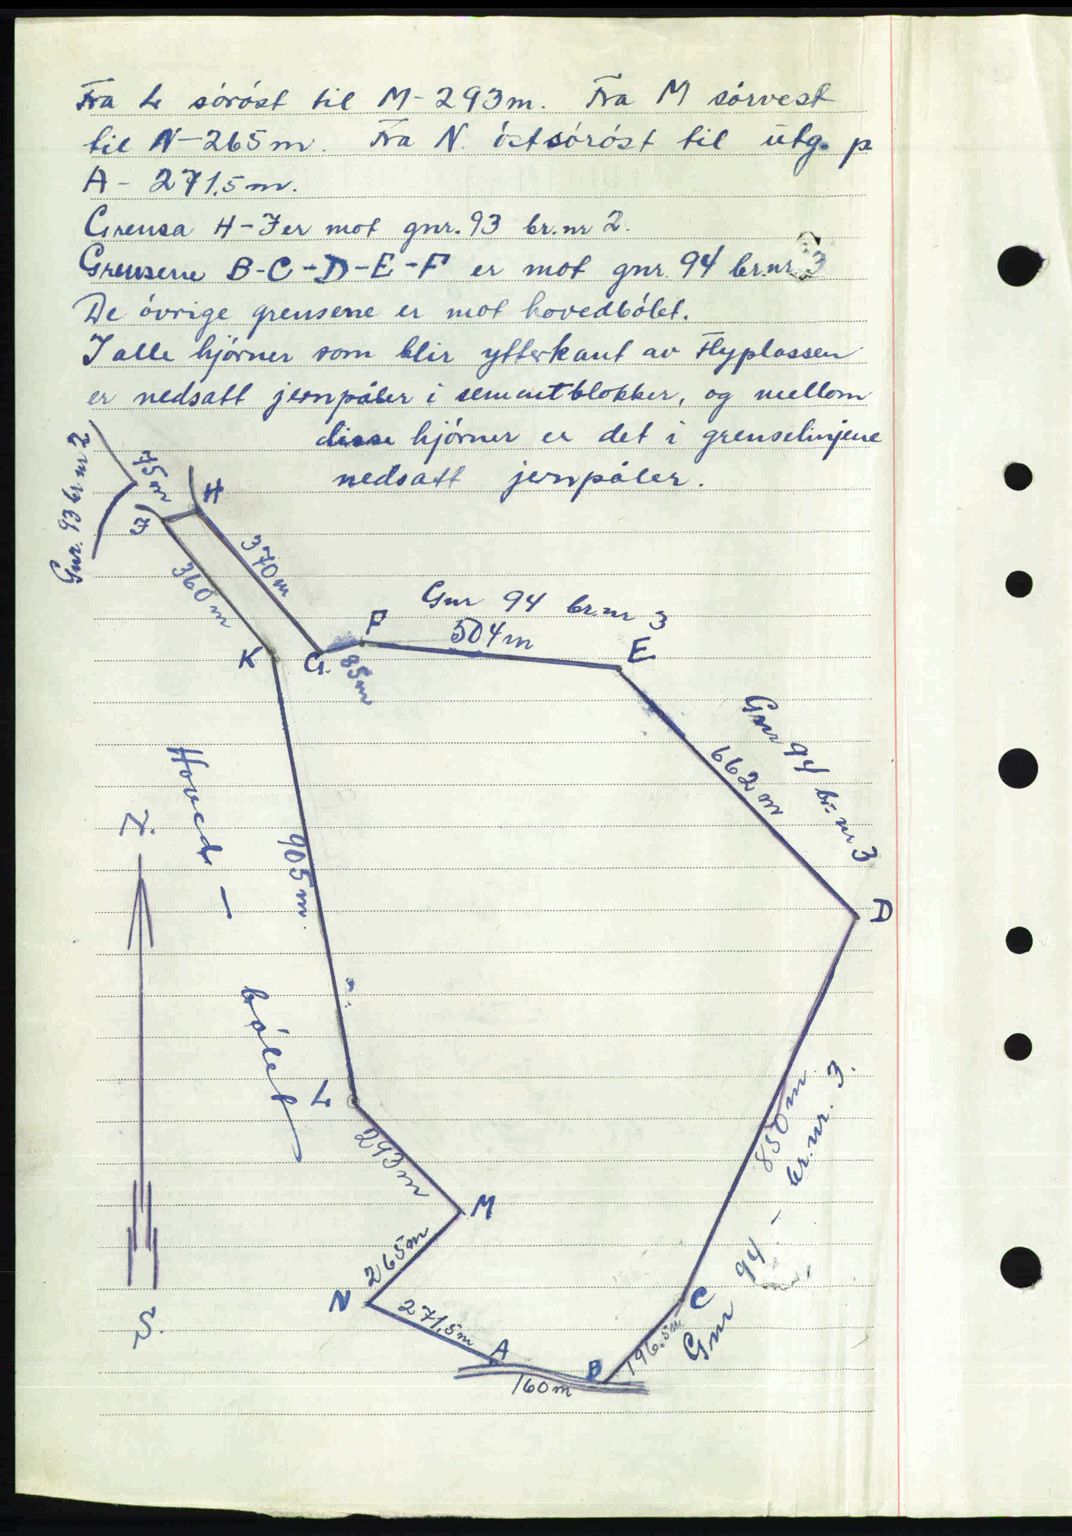 Fra L sórόst til M-293m. Fra M sórvest
til N-265m. Fra N. óstsóróst til utg. p
A- 271,5m.
Grensa H-J er mot gnr. 93 br.nr 2.
Grensene B-C-D-E-F er mot gnr. 94 br.nr. 3
De óvrige grensene er mot hovedbólet.
I alle hjórner som blir ytterkant av Flyplassen
er nedsatt jernpåler i sementblokker, og mellom
disse hjórner er det i grenselinjene
nedsatt jernpåler.
Gnr. 93 br.nr 2
45m
H
J
370m
360m
Gnr 94 br.nr 3
F
504m
E
K
G.
85m
Gnr 94 br.nr 3
662m
Hoved-
N.
905m
D
bólet
L
850m
br.nr. 3.
293m
M
265m
Gnr 94 -
N
271,5m
C
S.
A
B
196.5m
160m